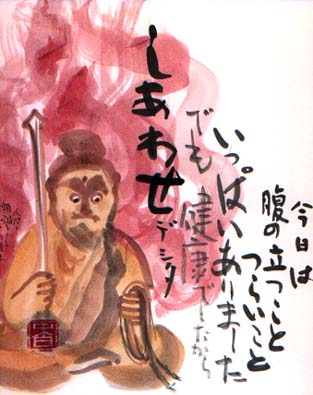 今日は
腹の立つこと
つらいこと
いっぱいありました
でも健康でしたから
しあわせデシタ